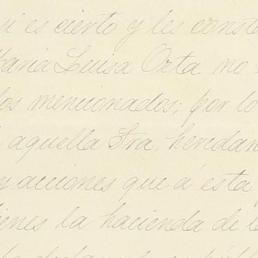 i es cierto y les consta
Maria Luisa Orta no
los mencionados; por lo
aquella Sra, heredan
y acciones que á esta
ienes la hacienda de